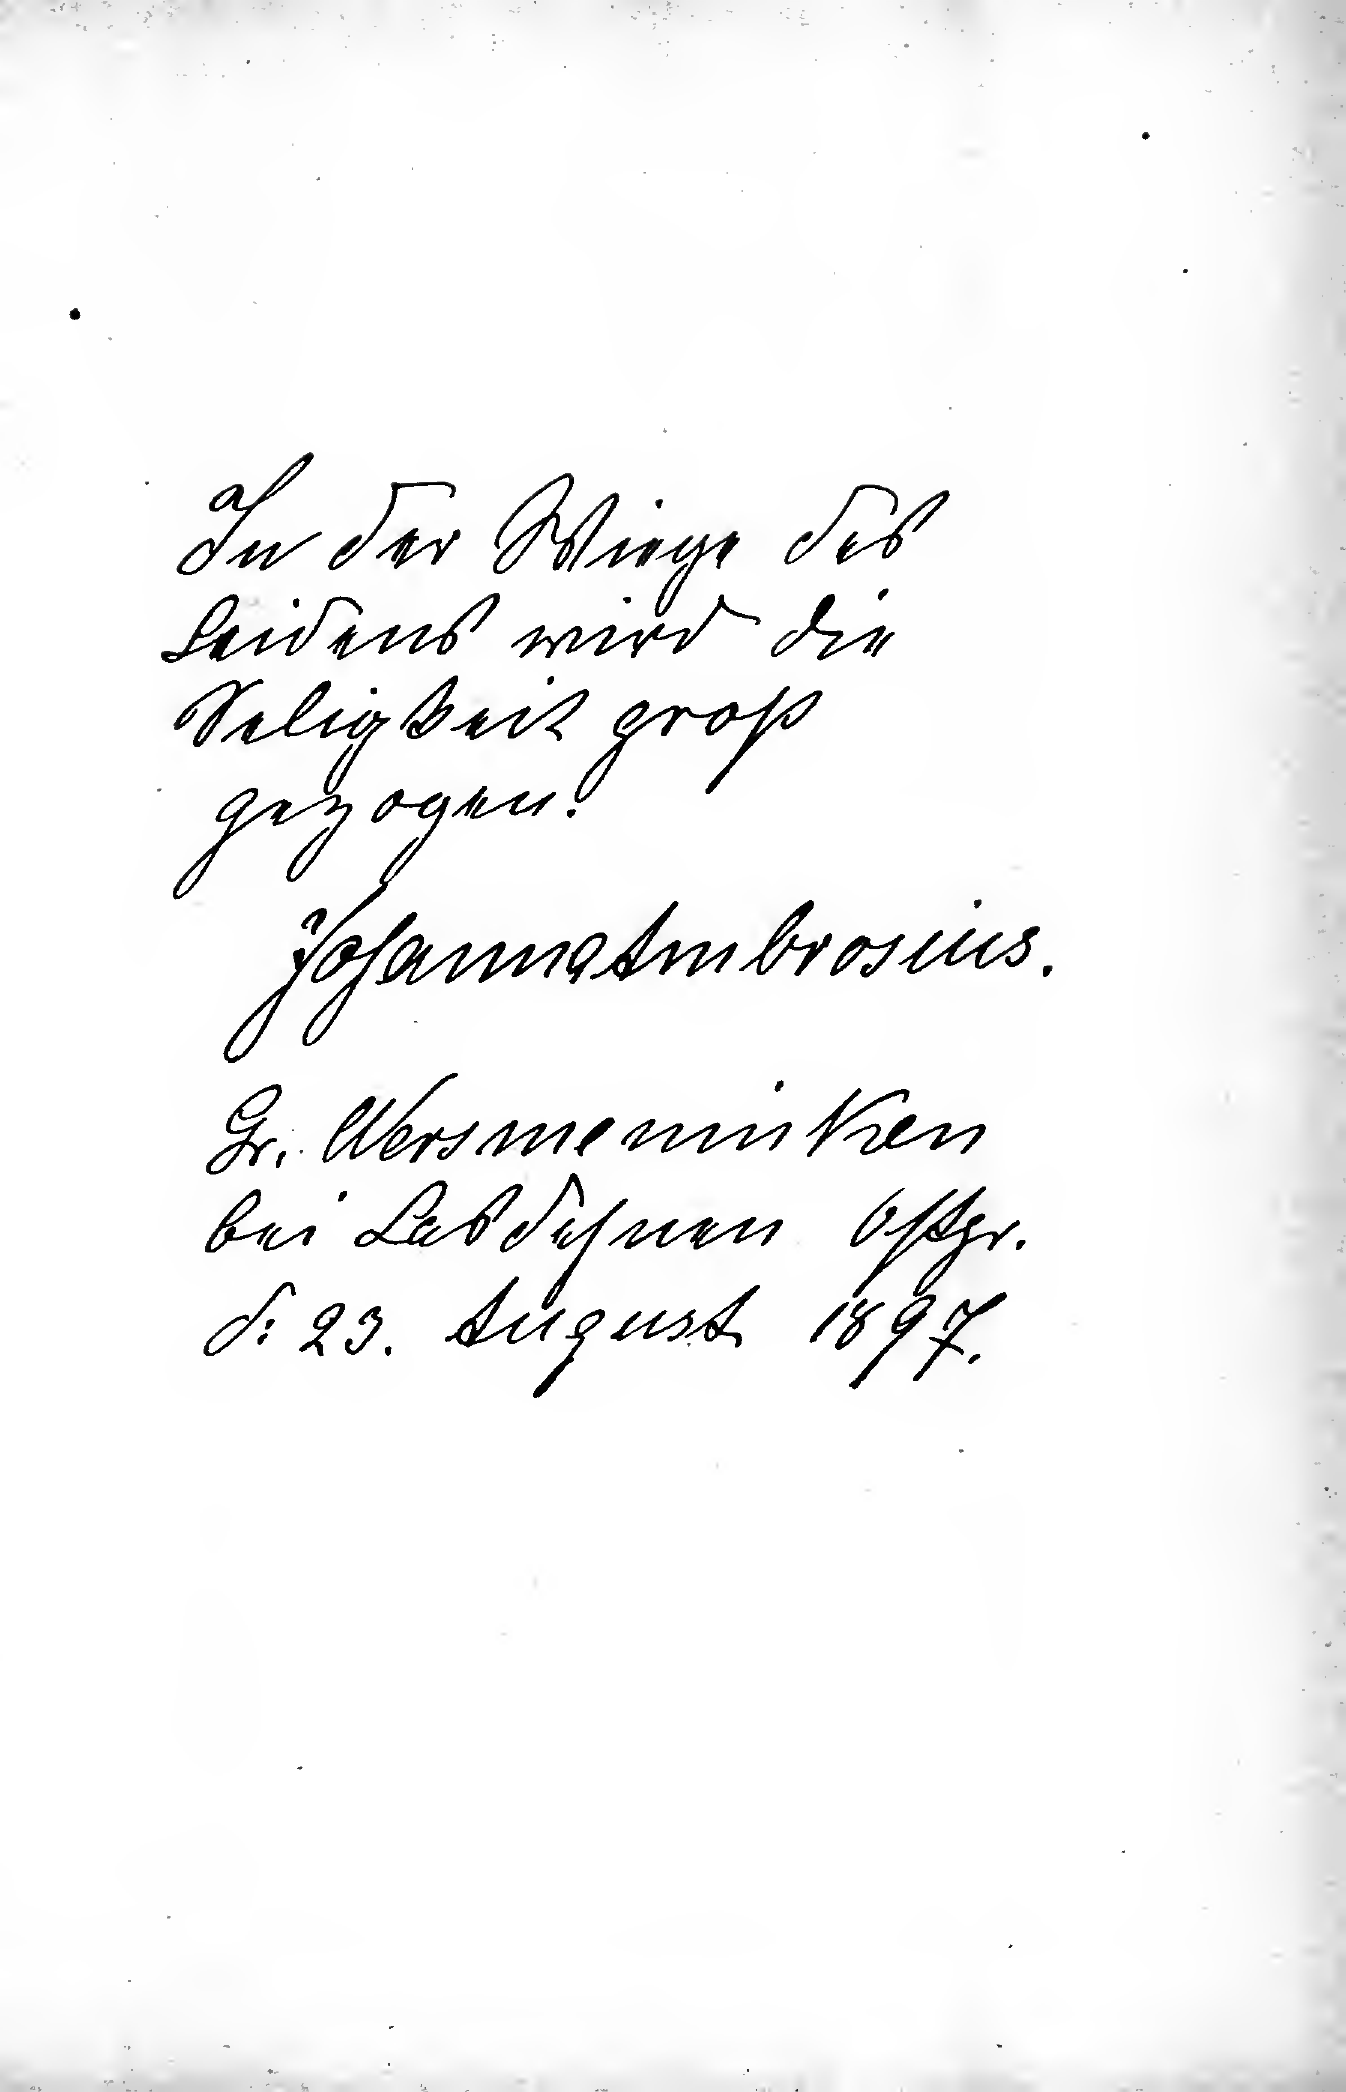 In der Wiege des
Leidens wird die
Seligkeit groß
gezogen.
Johanna Ambrosius.
Gr. Wersmeninken
bei Lasdehnen Ostpr.
d: 23. August 1897.